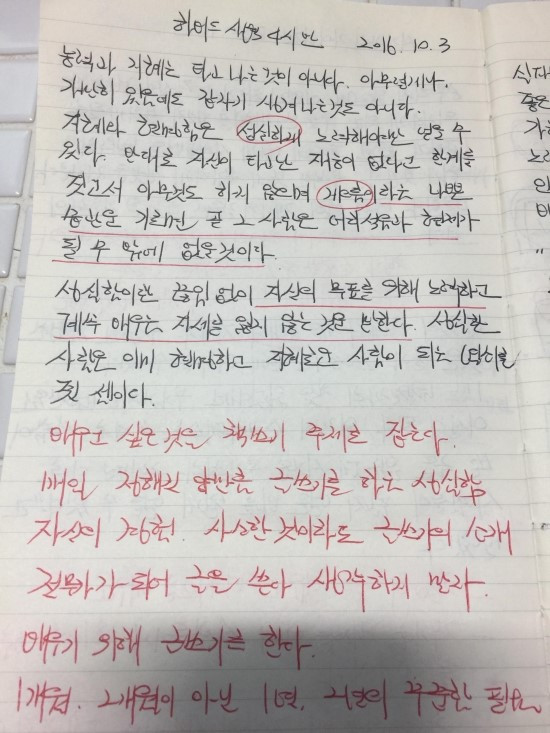 하버드 새벽 4시반 2016. 10. 3
능력과 지혜는 타고 나는 것이 아니다. 아무렇게나
가만히 있음에도 갑자기 생겨나는 것도 아니다.
지혜와 현명함은 성실하게 노력해야만 얻을 수
있다. 반대로 자신이 타고난 재능이 없다고 한계를
짓고서 아무것도 하지 않으며 게으름이라는 나쁜
습관을 기르면 곧 그 사람은 어리석음과 현재가
될 수 밖에 없을 것이다.
성실함이란 끊임 없이 자신의 목표를 위해 노력하고
계속 배우는 자세를 잃지 않는 것을 뜻한다. 성실한
사람은 이미 현명하고 지혜로운 사람이 되는 답이를
찾은 셈이다.
배우고 싶은 것은 책쓰기 주제로 잡는다.
매일 정해진 양만큼 글쓰기를 하는 성실함
자신의 경험. 사소한 것이라도 글쓰기의 소재
전문가가 되어 글을 쓴다 생각하지 말라.
배우기 위해 글쓰기를 한다.
1개월. 2개월이 아닌 1년, 2년의 꾸준함 필요
십
좋은
기
노
인
바
"